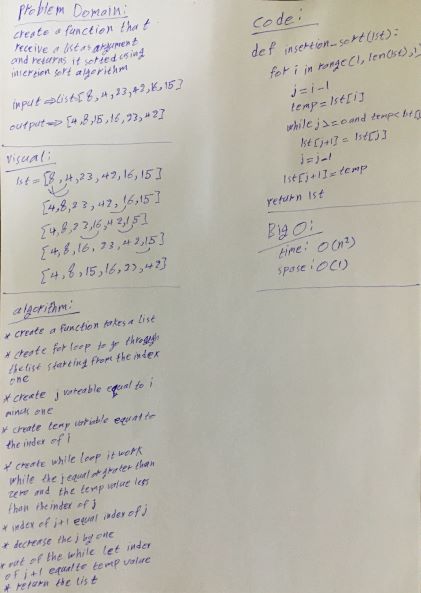 Problem Domain:
create a function that
receive a list as argument
and returns it sorted using
insertion sort algorithm
input => list [8,4,23,42,16,15]
output => [4,8,15,16,23,42]
Visual:
lst = [8,4,23,42,16,15]
[4,8,23,42,16,15]
[4,8,23,16,42,15]
[4,8,16,23,42,15]
[4,8,15,16,23,42]
algorithm:
* create a function takes a list
* create for loop to go through
the list starting from the index
one
* create j vareable equal to i
minus one
* create temp variable equal to
the index of i
* create while loop it work
while the j equal or grater than
zero and the temp value less
than the index of j
* index of j+1 equal index of j
* decrease the j by one
* out of the while let index
of j+1 equal to temp value
* return the list
Code:
def insertion_sort(lst):
for i in range(1, len(lst),1
j = i-1
temp = lst[i]
while j>=0 and temp<lst[j
lst[j+1] = lst[j]
j = j-1
lst[j+1] = temp
return lst
Big O:
time: O(n²)
spase: O(1)